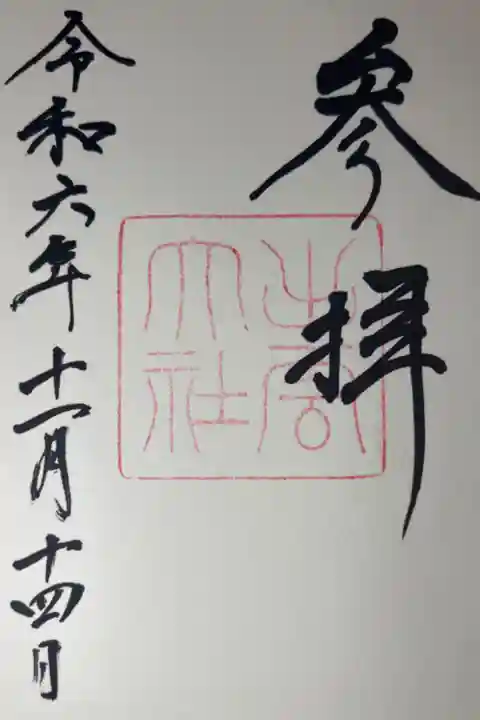 参拝
出雲大社
令和六年十一月十四日